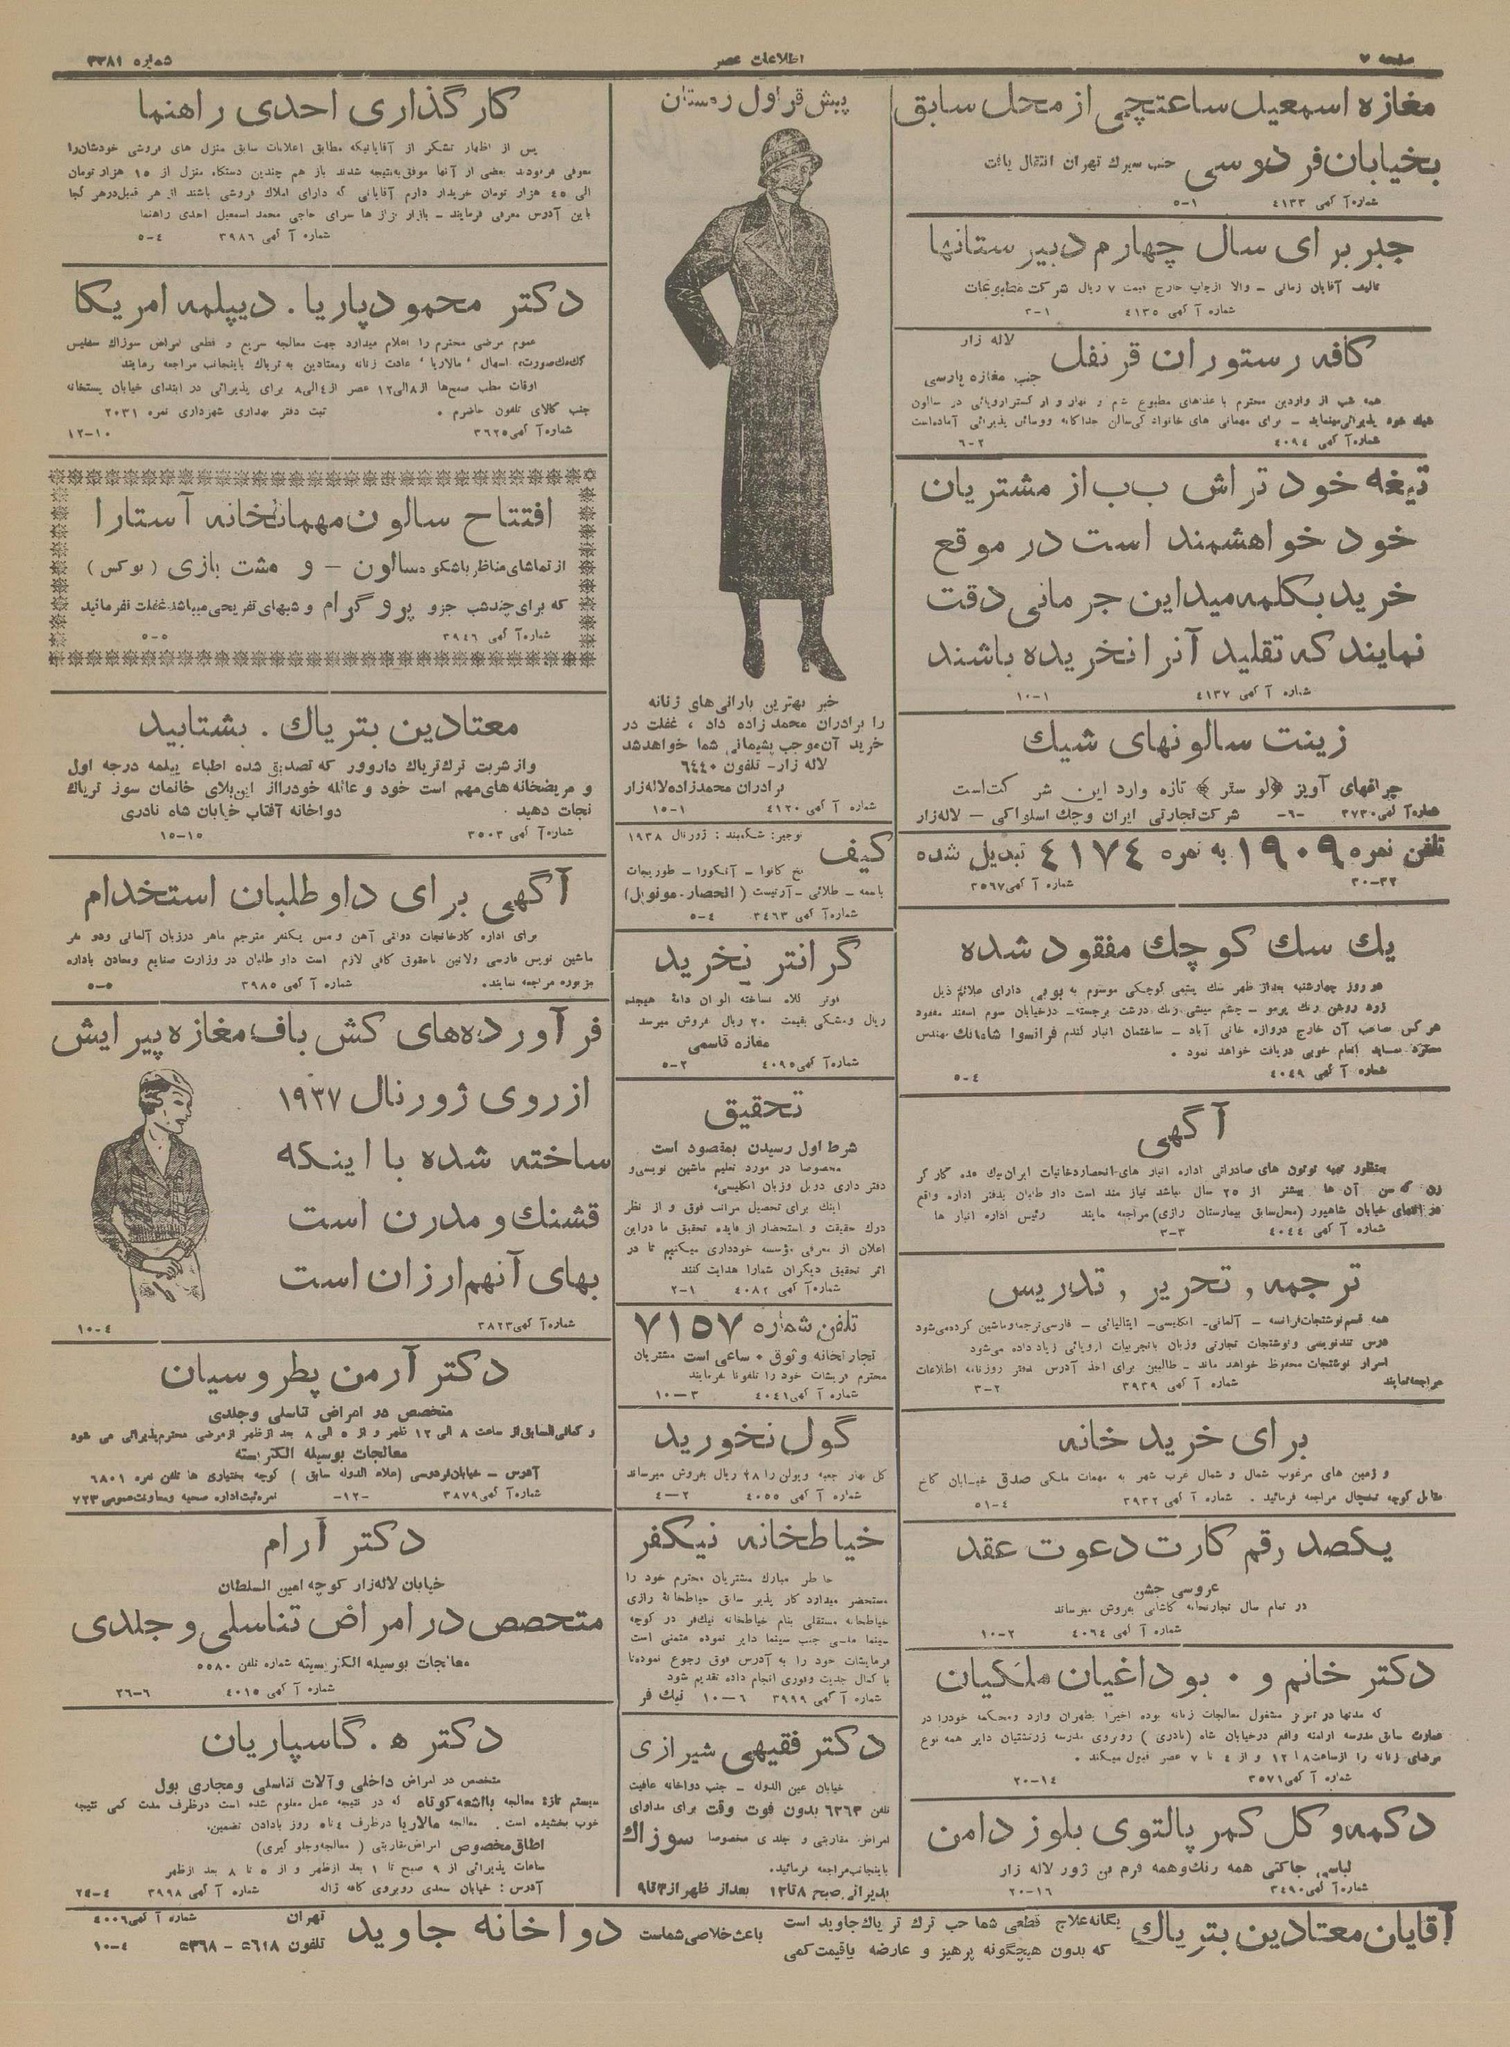 صفحه ۷
اطلاعات عصر
شماره ۳۳۸۱
مغازه اسمعیل ساعتچی از محل سابق
بخیابان فردوسی جنب سیرک تهران انتقال یافت
شماره آگهی ۴۱۳۳ ۱-۵
جبر برای سال چهارم دبیرستانها
تألیف آقایان زمانی – والا از چاپ خارج قیمت ۷ ریال شرکت مطبوعات
شماره آگهی ۴۱۳۵ ۱-۳
کافه رستوران قرنفل لاله زار
جنب مغازه پارسی
همه شب از واردین محترم با غذهای مطبوع شام و نهار و ارکستر اروپائی در سالون
شیک خود پذیرائی مینماید – برای مهمانی های خانوادگی سالن جداگانه و وسائل پذیرائی آماده است
شماره آگهی ۴۰۹۴ ۲-۶
تیغه خود تراش ب ب از مشتریان
خود خواهشمند است در موقع
خرید بکلمه میداین جرمانی دقت
نمایند که تقلید آنرا نخریده باشند
شماره آگهی ۴۱۳۷ ۱-۱۰
زینت سالونهای شیک
چراغهای آویز (لوستر) تازه وارد این شرکت است
شماره آگهی ۳۷۳۰ -۶- شرکت تجارتی ایران و چک اسلواکی – لاله زار
تلفن نمره ۱۹۰۹ به نمره ۴۱۷۴ تبدیل شده
شماره آگهی ۳۵۶۷ ۲۲-۳۰
یک سک کوچک مفقود شده
هر کس صاحب آن خارج دروازه خانی آباد – ساختمان انبار گندم فرانسوا شاهانک مهندس
انعام خوبی دریافت خواهد نمود .
شماره آگهی ۴۰۴۹ ۴-۵
آگهی
بمنظور تهیه توتون های صادراتی اداره انبار های انحصار دخانیات ایران یک عده کار گر
زن که سن آن ها بیشتر از ۲۵ سال نباشد نیاز مند است داوطلبان بدفتر اداره واقع
در انتهای خیابان شاهپور (محل سابق بیمارستان رازی) مراجعه نمایند رئیس اداره انبار ها
شماره آگهی ۴۰۴۴ ۳-۳
ترجمه , تحریر , تدریس
همه قسم نوشتجات فرانسه – آلمانی- انگلیسی- ایتالیائی – فارسی ترجمه و ماشین کرده میشود
درس تندنویسی و نوشتجات تجارتی و زبان با تجربیات اروپائی زیاد داده می‌شود
اسرار نوشتجات محفوظ خواهد ماند – طالبین برای اخذ آدرس بدفتر روزنامه اطلاعات
مراجعه نمایند شماره آگهی ۳۹۳۹ ۲-۳
برای خرید خانه
و زمین های مرغوب شمال و شمال غرب شهر به مهمات ملکی صدق خیابان کاخ
مقابل کوچه یخچال مراجعه فرمائید . شماره آگهی ۳۹۳۲ ۴-۵۱
یکصد رقم کارت دعوت عقد
عروسی جشن
در تمام سال تجارتخانه کاشانی بفروش میرساند
شماره آگهی ۴۰۶۴ ۲-۱۰
دکتر خانم و . بوداغیان ملکیان
که مدتها در تبریز مشغول معالجات زنانه بوده اخیرا بطهران وارد و محکمه خود را در
عمارت سابق مدرسه ارامنه واقع در خیابان شاه (نادری) روبروی مدرسه زرتشتیان دایر همه نوع
مرضای زنانه را از ساعت ۸ تا ۱۲ و از ۴ تا ۷ عصر قبول میکند .
شماره آگهی ۳۵۷۱ ۱۴-۲۰
دکمه و گل کمر پالتوی بلوز دامن
لباس جاکتی همه رنک و همه فرم بن ژور لاله زار
شماره آگهی ۳۴۹۰ ۱۶-۲۰
پیش قراول زمستان
خبر بهترین بارانی‌های زنانه
را برادران محمدزاده داد ، غفلت در
خرید آن موجب پشیمانی شما خواهد شد
لاله زار- تلفون ۶۴۴۰
برادران محمدزاده لاله زار
شماره آگهی ۴۱۲۰ ۱-۱۵
کیف نوجیر: شکوبند : ژورنال ۱۹۳۸
نخ کانوا – آنگورا – طوریجات
باسمه – طلائی – آرتیست (الحصار- مونوپل)
شماره آگهی ۳۴۶۳ ۴-۵
گرانتر نخرید
فوتر کلاه ساخته الوان دانهٔ هیجده
ریال و مشکی بقیمت ۲۰ ریال فروش میرسد
مغازه قاسمی
شماره آگهی ۴۰۹۵ ۲-۵
تحقیق
شرط اول رسیدن بمقصود است
مخصوصا در مورد تعلیم ماشین نویسی و
دفتر داری دوبل و زبان انگلیسی،
اینک برای تحصیل مراتب فوق و از نظر
درک حقیقت و استحضار از فایده تحقیق ما در این
اعلان از معرفی مؤسسه خودداری میکنیم تا در
اثر تحقیق دیگران شما را هدایت کنند
شماره آگهی ۴۰۸۲ ۱-۲
تلفن شماره ۷۱۵۷
تجارتخانه وثوق . ساعی است مشتریان
محترم فرمایشات خود را تلفونا بفرمایند
شماره آگهی ۴۰۴۱ ۳-۱۰
گول نخورید
شماره آگهی ۴۰۵۵ ۲-۴
خیاطخانه نیکفر
خاطر مبارک مشتریان محترم خود را
مستحضر میدارد کار پذیر سابق خیاطخانهٔ رازی
خیاطخانه مستقلی بنام خیاطخانه نیک‌فر در کوچه
سینما ملی جنب سینما دایر نموده متمنی است
فرمایشات خود را به آدرس فوق رجوع نموده تا
با کمال جدیت و فوری انجام داده تقدیم شود
شماره آگهی ۳۹۹۹ ۶-۱۰ نیک فر
دکتر فقیهی شیرازی
خیابان عین الدوله – جنب دواخانه عافیت
تلفن ۶۳۶۳ بدون فوت وقت برای مداوای
امراض مقاربتی و جلدی مخصوصا سوزاک
باینجانب مراجعه فرمائید.
پذیرائی صبح ۸ تا ۱۲ بعد از ظهر از ۳ تا ۹
کارگذاری احدی راهنما
پس از اظهار تشکر از آقایانیکه مطابق اعلانات سابق منزل های فروشی خودشان را
معرفی فرمودند بعضی از آنها موفق به نتیجه شدند باز هم چندین دستگاه منزل از ۱۵ هزار تومان
الی ۴۵ هزار تومان خریدار دارم آقایانی که دارای املاک فروشی باشند از هر قبیل در هر کجا
باین آدرس معرفی فرمایند – بازار بزاز ها سرای حاجی محمد اسمعیل احدی راهنما
شماره آگهی ۳۹۸۶ ۴-۵
دکتر محمود پاریا . دیپلمه امریکا
عموم مرضی محترم را اعلام میدارد جهت معالجه سریع و قطعی امراض سوزاک سفلیس
کک مک صورت، اسهال ' مالاریا ' عادت زنانه و معتادین به تریاک باینجانب مراجعه نمایند
اوقات مطب صبح‌ها از ۸ الی ۱۲ عصر از ۴ الی ۸ برای پذیرائی در ابتدای خیابان پستخانه
جنب کالای تلفون حاضرم . ثبت دفتر بهداری شهرداری نمره ۲۰۳۱
شماره آگهی ۳۶۲۵ ۱۰-۱۲
افتتاح سالون مهمانخانه آستارا
از تماشای مناظر باشکوه سالون – و مشت بازی (بوکس)
که برای چند شب جزو پروگرام و شبهای تفریحی میباشد غفلت نفرمائید
شماره آگهی ۳۹۴۶ ۵-۵
معتادین بتریاک . بشتابید
و از شربت ترک تریاک داروور که تصدیق شده اطباء دیپلمه درجه اول
و مریضخانه های مهم است خود و عائله خود را از این بلای خانمان سوز تریاک
نجات دهید . دواخانه آفتاب خیابان شاه نادری
شماره آگهی ۳۵۰۳ ۱۵-۱۵
آگهی برای داوطلبان استخدام
برای اداره کارخانجات ذوب آهن و مس یکنفر مترجم ماهر در زبان آلمانی و دو نفر
ماشین نویس فارسی و لاتین با حقوق کافی لازم است داوطلبان در وزارت صنایع و معادن باداره
مزبوره مراجعه نمایند. شماره آگهی ۳۹۸۵ ۵-۵
فرآورده‌های کش باف مغازه پیرایش
از روی ژورنال ۱۹۳۷
ساخته شده با اینکه
قشنک و مدرن است
بهای آنهم ارزان است
شماره آگهی ۳۸۲۳ ۴-۱۰
دکتر آرمن پطروسیان
متخصص در امراض تناسلی و جلدی
و کمافی السابق از ساعت ۸ الی ۱۲ ظهر و از ۵ الی ۸ بعد از ظهر از مرضی محترم پذیرائی می شود
معالجات بوسیله الکتریسته
آدرس – خیابان فردوسی (علاء الدوله سابق) کوچه بختیاری ها تلفن نمره ۶۸۰۱
شماره آگهی ۳۸۷۹ -۱۲- نمره ثبت اداره صحیه و معاونت عمومی ۷۲۳
دکتر آرام
خیابان لاله زار کوچه امین السلطان
متخصص در امراض تناسلی و جلدی
معالجات بوسیله الکتریسیته شماره تلفن ۵۵۸۰
شماره آگهی ۴۰۱۵ ۶-۲۶
دکتر ه . گاسپاریان
متخصص در امراض داخلی و آلات تناسلی و مجاری بول
سیستم تازهٔ معالجه با اشعه کوتاه که در نتیجه عمل معلوم شده است در ظرف مدت کمی نتیجه
خوب بخشیده است . معالجه مالاریا در ظرف ۴ تا ۵ روز با دادن تضمین.
اطاق مخصوص امراض مقاربتی (معالجه و جلوگیری)
ساعات پذیرائی از ۹ صبح تا ۱ بعد از ظهر و از ۵ تا ۸ بعد از ظهر
آدرس : خیابان سعدی روبروی کافه ژاله شماره آگهی ۳۹۹۸ ۴-۲۴
آقایان معتادین بتریاک یگانه علاج قطعی شما حب ترک تریاک جاوید است
که بدون هیچگونه پرهیز و عارضه با قیمت کمی
باعث خلاصی شماست دواخانه جاوید تهران
تلفون ۵۶۱۸ - ۵۳۶۸
شماره آگهی ۴۰۰۶
۴-۱۰